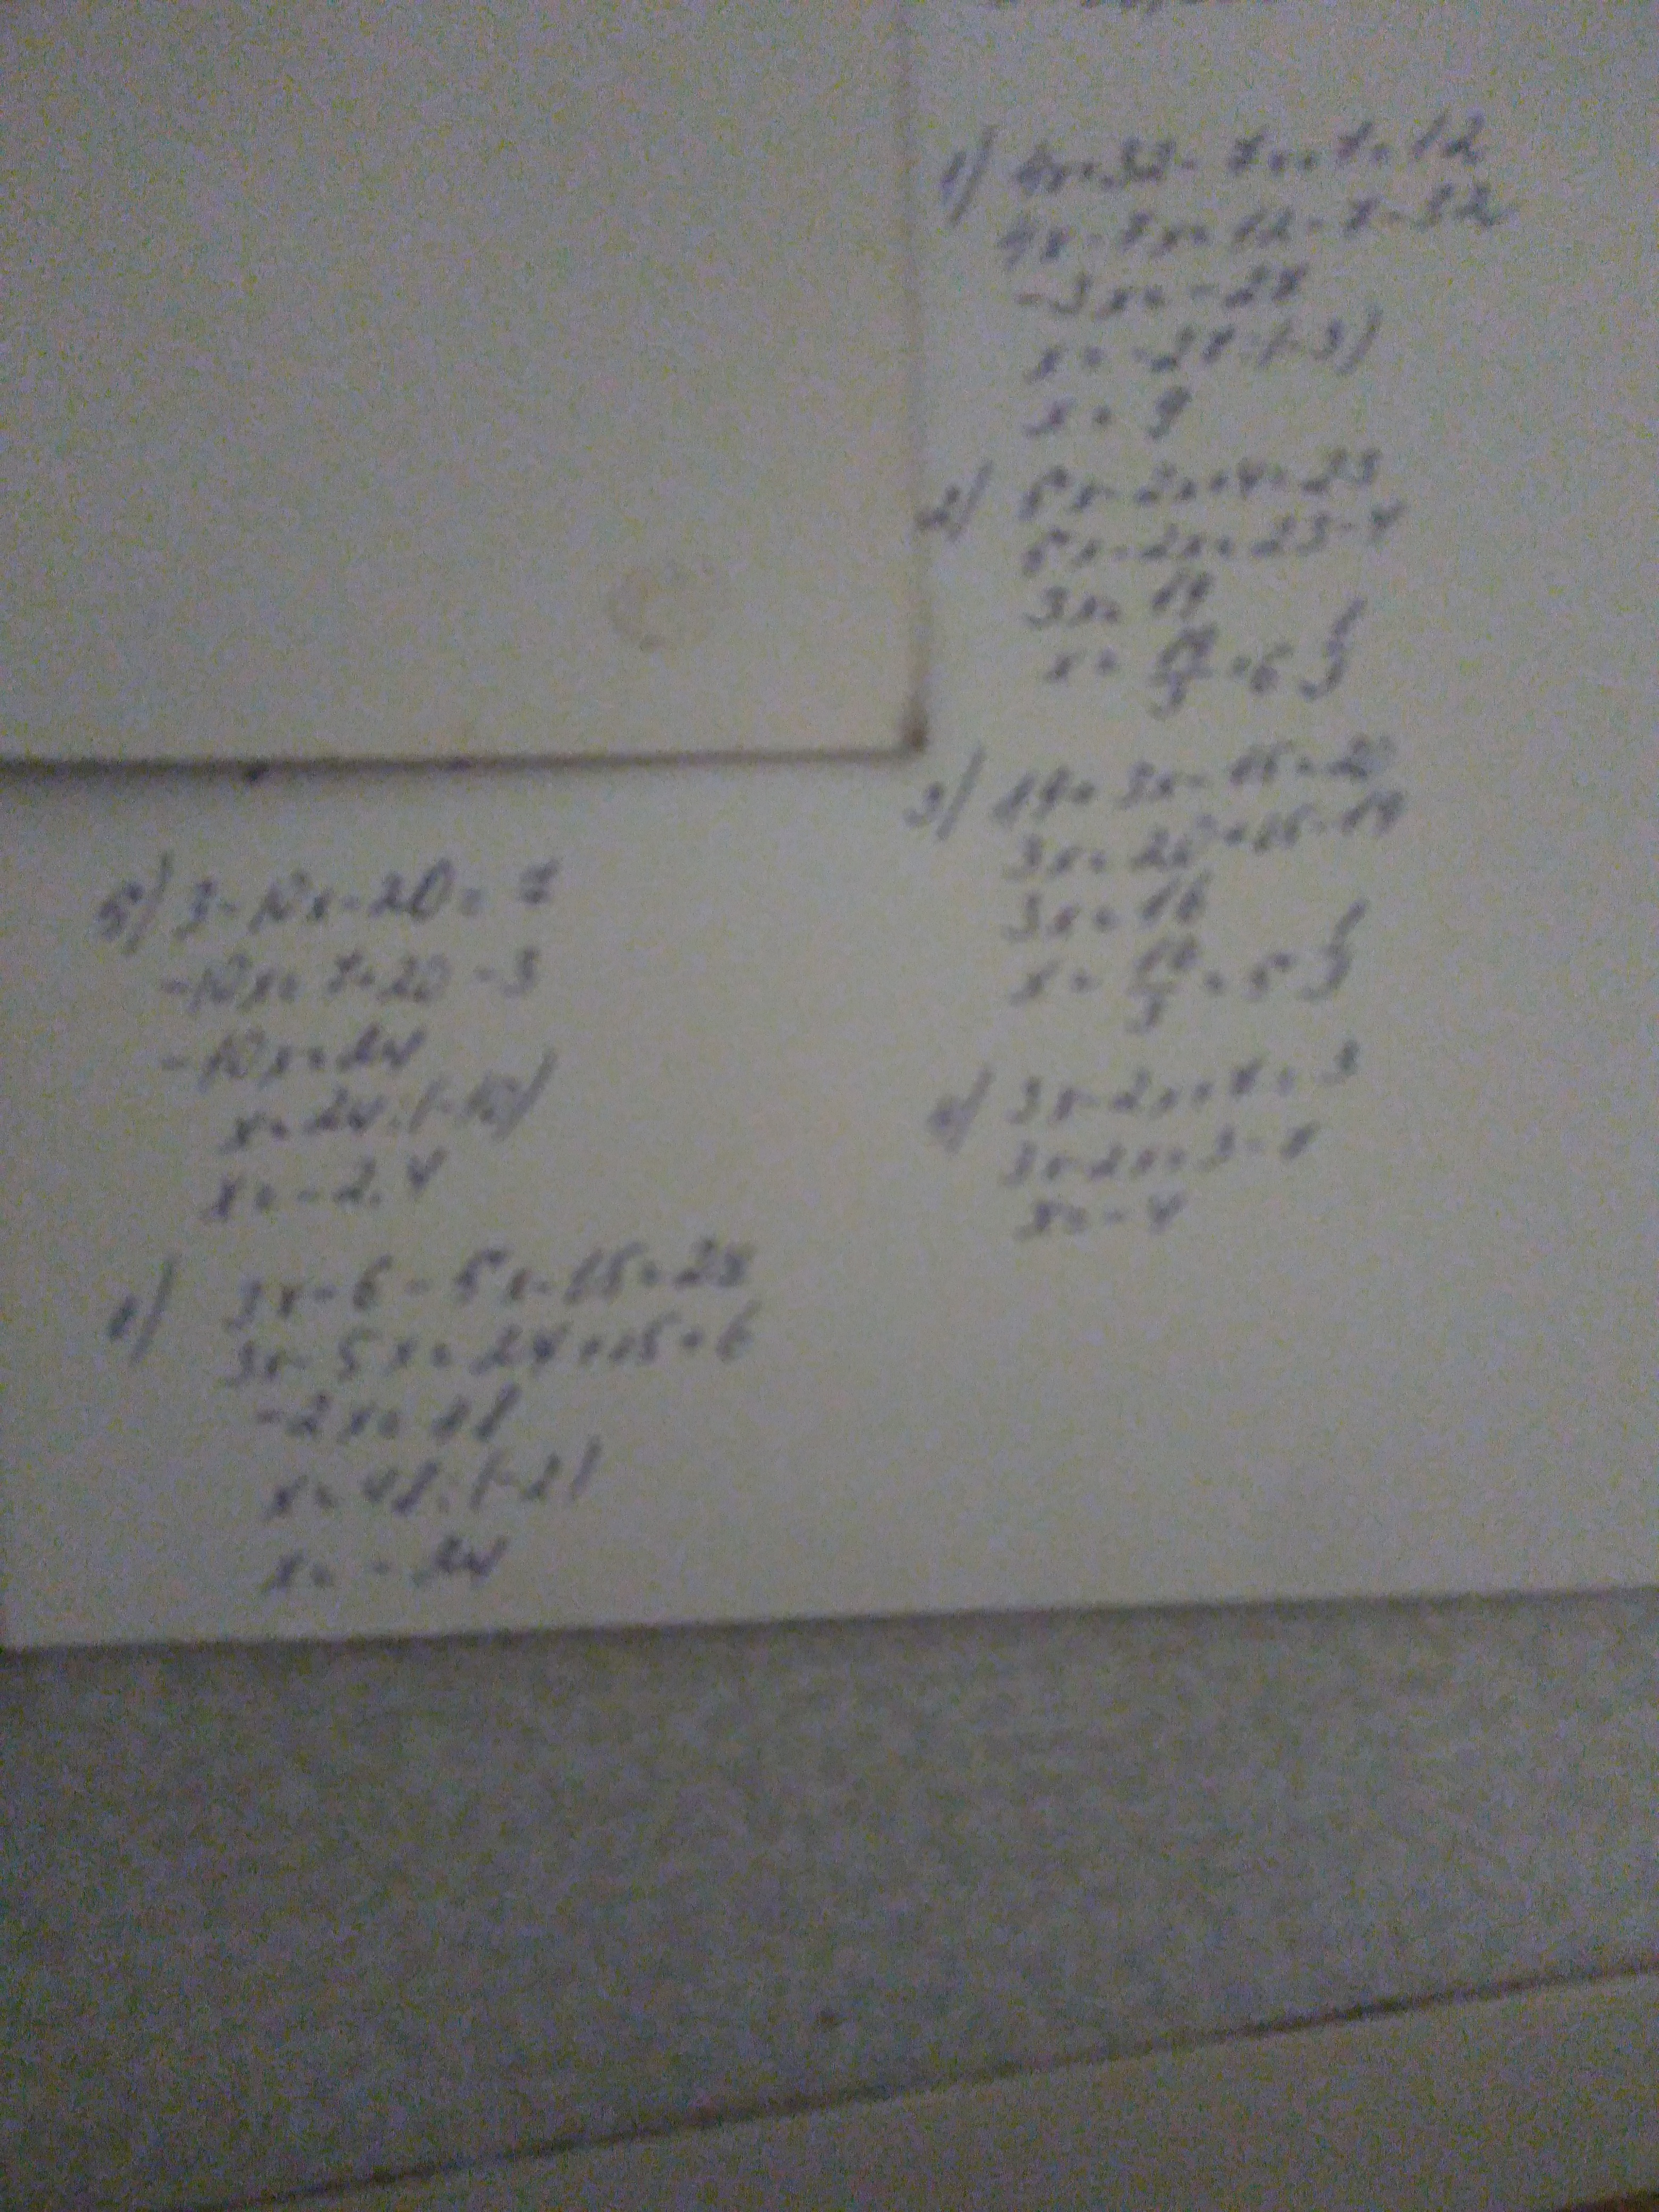 1) 4x+32-7x+7=12
4x-7x=12-7-32
-3x=-27
x=-27:(-3)
x=9
2) 5x-2x+4=23
5x-2x=23-4
3x=19
x=19/3=6 1/3
3) 19+3x-15=20
3x=20+15-19
3x=16
x=16/3=5 1/3
4) 3x-2x+7=3
3x-2x=3-7
x=-4
5) 3-10x-20=7
-10x=7+20-3
-10x=24
x=24:(-10)
x=-2.4
3x-6-5x-15=
3x-5x=24+15+6
-2x=48
x=48:(-2)
x=-24